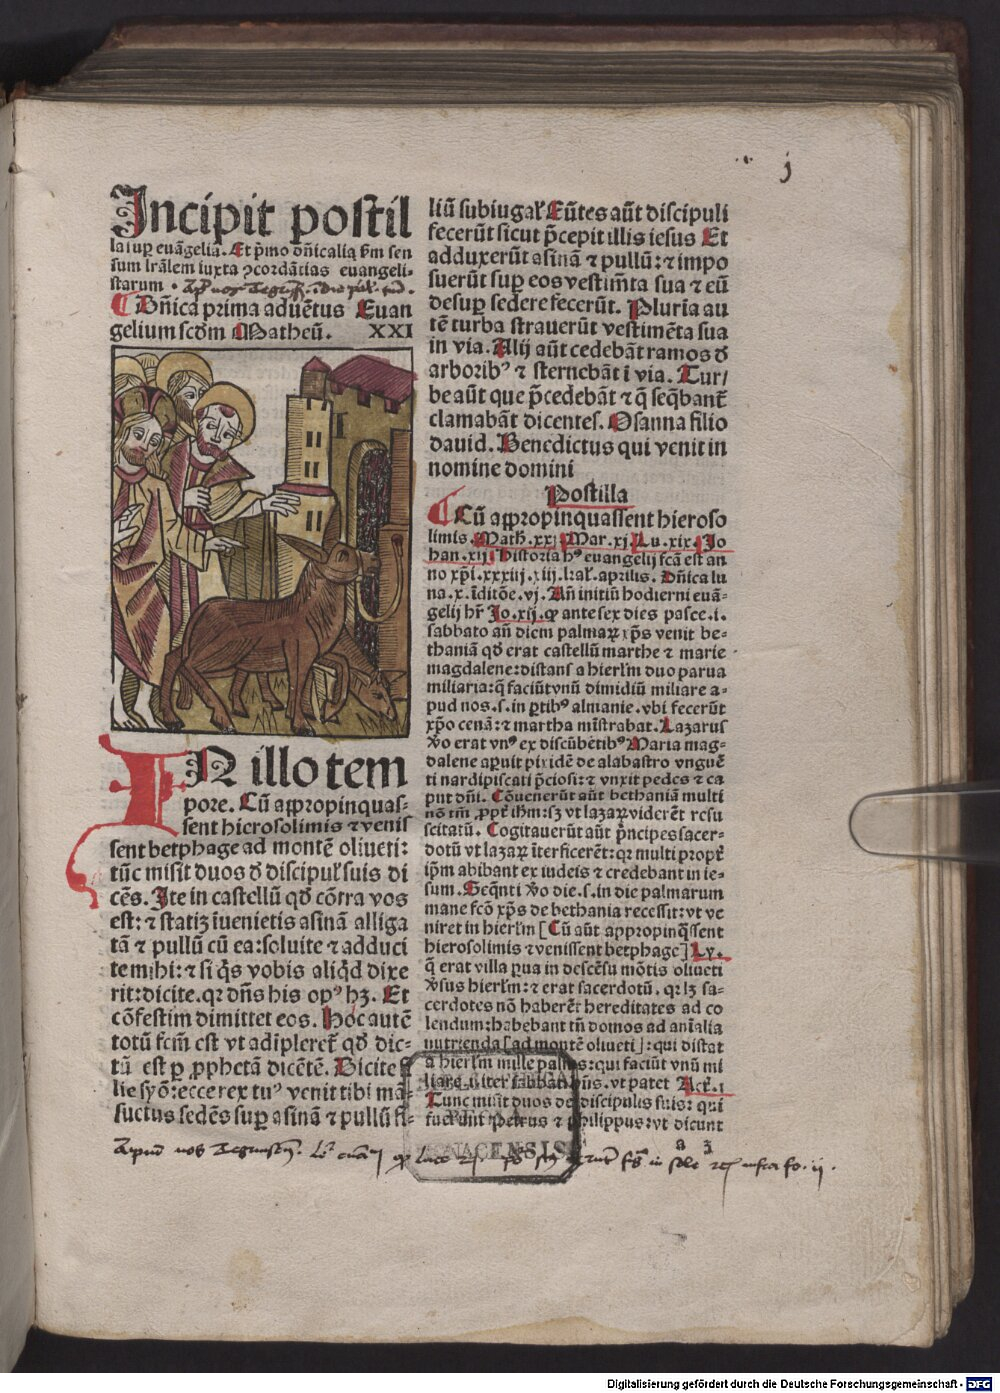 j
Incipit postil
la sup euāgelia. Et p̄mo dn̄icalia s̄m sen
sum lr̄alem iuxta ꝯcordātias euangeli-
starum.
Dn̄ica prima aduētus Euan
gelium scd̄m Matheū. XXI
IN illo tem
pore. Cū appropinquas-
sent hierosolimis ⁊ venis
sent betphage ad montē oliueti:
tūc misit duos d̄ discipul' suis di
cēs. Ite in castellū qd̄ cōtra vos
est: ⁊ statiꝫ īuenietis asinā alliga
tā ⁊ pullū cū ea: soluite ⁊ adduci
te mihi: ⁊ si q̄s vobis aliq̄d dixe
rit: dicite. qꝛ dn̄s his opꝰ hꝫ. Et
cōfestim dimittet eos. Hoc autē
totū fcm̄ est vt adipleret̄ qd̄ dic-
tū est ꝑ ꝓphetā dicētē. Dicite fi
lie syō: ecce rex tuꝰ venit tibi mā-
suetus sedēs sup asinā ⁊ pullū fi-
liū subiugal' Eūtes aūt discipuli
fecerūt sicut p̄cepit illis iesus Et
adduxerūt asinā ⁊ pullū: ⁊ impo
suerūt sup eos vestimēta sua ⁊ eū
desup sedere fecerūt. Pluria au
tē turba strauerūt vestimēta sua
in via. Alij aūt cedebāt ramos d̄
arboribꝰ ⁊ sternebāt ī via. Tur/
be aūt que p̄cedebāt ⁊ q̄ seq̄bant̄
clamabāt dicentes. Osanna filio
dauid. Benedictus qui venit in
nomine domini
Postilla
Cū appropinquassent hieroso
limis. Math. xxj Mar. xj Lu. xix. Jo
han. xij Historia hꝰ euangelij fcā est an
no xp̄i. xxxiij. xiij. kal'. aprilis. Dn̄ica lu
na. x. īditōe. vj. An̄ initiū hodierni euā-
gelij hr̄ Jo. xij. ꝙ ante sex dies pasce. i.
sabbato an̄ diem palmaꝝ xp̄s venit be-
thaniā qd̄ erat castellū marthe ⁊ marie
magdalene: distans a hierl'm duo parua
miliaria: q̄ faciūt vnū dimidiū miliare a-
pud nos. s. in ꝑtibꝰ almanie. vbi fecerūt
xp̄o cenā: ⁊ martha mīstrabat. Lazarus
v̄o erat vnꝰ ex discūbētibꝰ Maria mag-
dalene aꝑuit pixidē de alabastro vnguē
ti nardi pistici p̄ciosi: ⁊ vnxit pedes ⁊ ca
put dn̄i. Cōuenerūt aūt bethaniā multi
nō tm̄ ꝓpt̄ ih̄m: sꝫ vt lazaꝝ viderēt resu
scitatū. Cogitauerūt aūt p̄ncipes sacer-
dotū vt lazaꝝ īterficerēt: qꝛ multi propt̄
ip̄m abibant ex iudeis ⁊ credebant in ie-
sum. Seq̄nti v̄o die. s. in die palmarum
mane fcō xp̄s de bethania recessit: vt ve
niret in hierl'm [Cū aūt appropinq̄ssent
hierosolimis ⁊ venissent betphage] Ly.
q̄ erat villa ꝑua in descēsu mōtis oliueti
v̄sus hierl'm: ⁊ erat sacerdotū. qꝛ lꝫ sa-
cerdotes nō haberēt hereditates ad co
lendum: habebant tn̄ domos ad aīalia
nutrienda [ad montē oliueti]: qui distat
a hierl'm mille passus: qui faciūt vnū mi
liare. iter sabbati
vt patet Act. i
Tunc misit duos de discipulis suis: qui
fuerunt Petrus ⁊ Philippus: vt dicunt
a 3
Digitalisierung gefördert durch die Deutsche Forschungsgemeinschaft - DFG